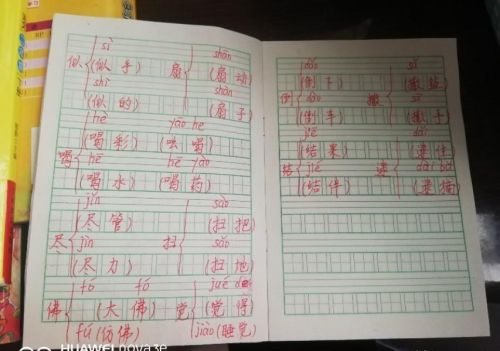 sì shān
似 (似乎) 扇 (扇动)
shì shān
(似的) (扇子)
hē yāo he
(喝彩) (吆喝)
喝 hē hē yào
(喝水) (喝药)
jǐn sào
(尽管) (扫把)
尽 jìn 扫 sǎo
(尽力) (扫地)
fó fó jué de
佛 (大佛) 觉 (觉得)
fú (仿佛) jiào (睡觉)
HUAWEI nova 3e
dǎo
(倒下)
倒 dào 撒
(倒车)
jiē dǎi
(结果) (逮住)
结 jié 逮 dài bǔ
(结伴) (逮捕)